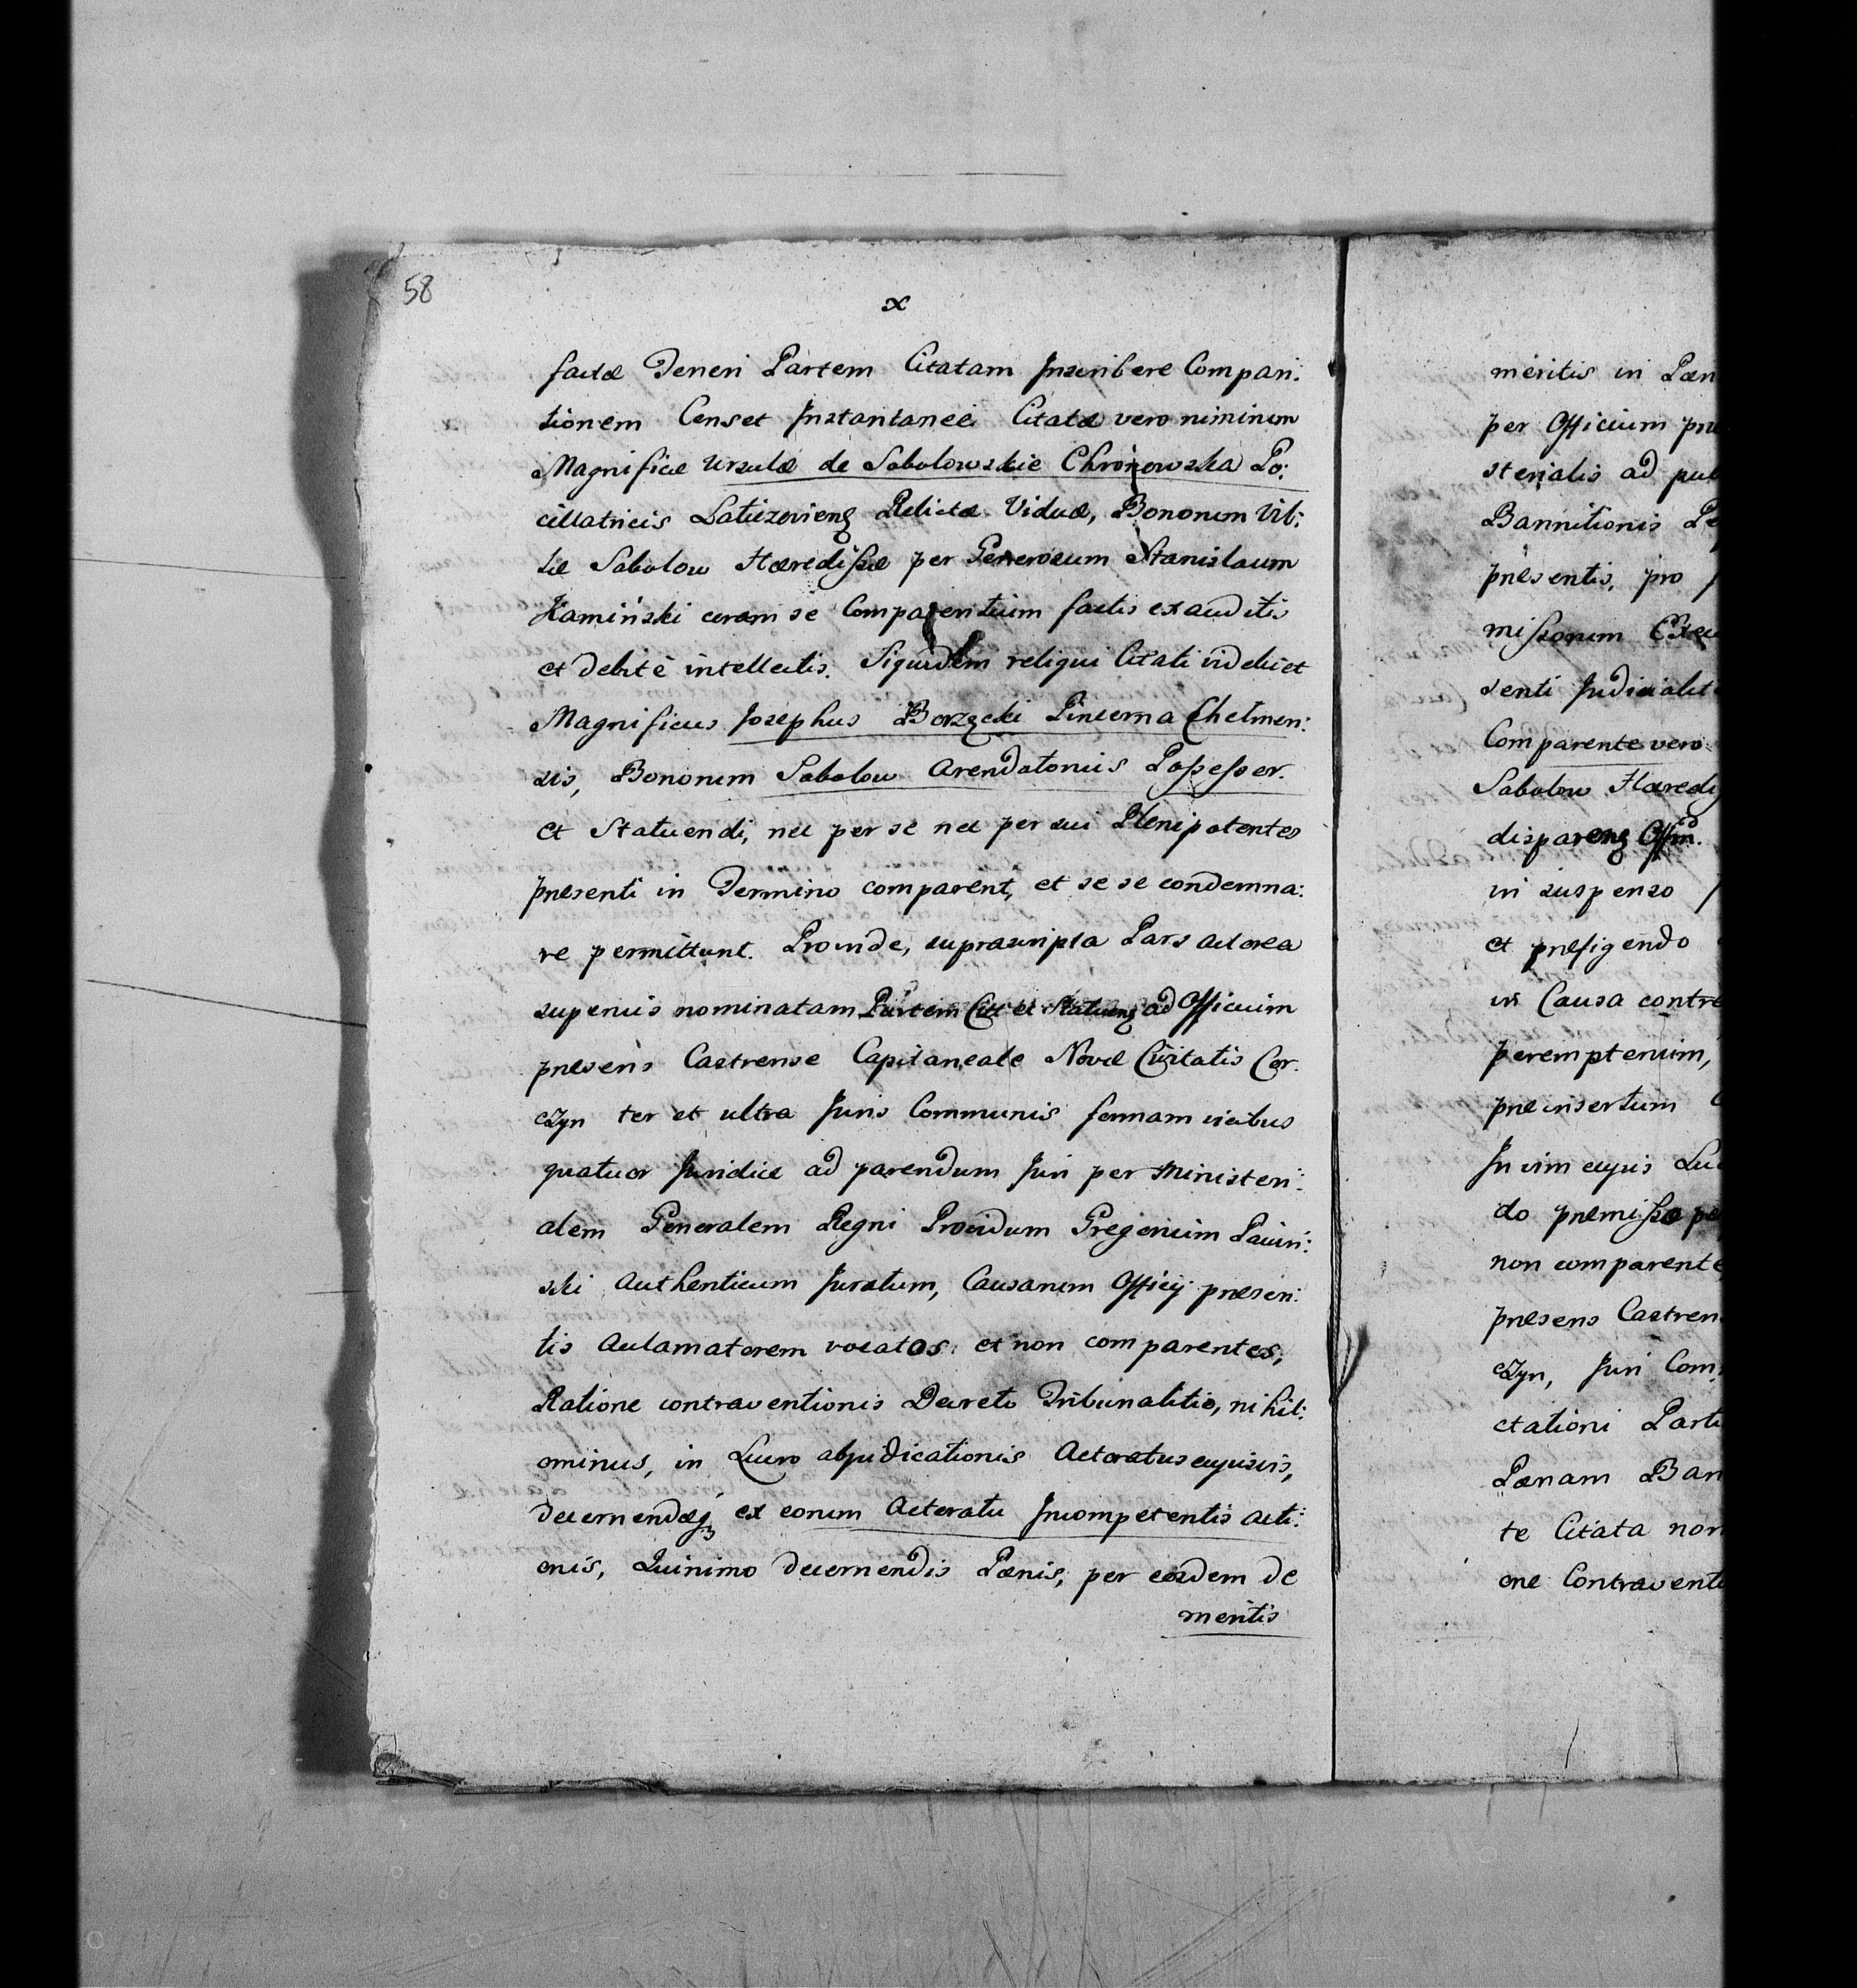 58
x
factæ Teneri Partem Citatam Inscribere Compari:
tionem Censet Instantanee Citatæ vero niminum
Magnificæ Ursulæ de Sobolowskie Chronowska Po:
cillatricis Laticzoviens Relictæ Viduæ, Bonorum Vil:
læ Sobolow Hæredissæ per Generosum Stanislaum
Kamiński coram se Comparentium factis exauditis
et debitè intellectis. Siquidem reliqui Citati videlicet
Magnificus Josephus Borzęcki Pincerna Chelmen:
sis, Bonorum Sobolow Arendatorius Possessor.
et Statuendi, nec per se nec per sui Plenipotentes
præsenti in Termino comparent, et se se condemna:
re permittunt. Proinde, suprascripta Pars Actorea
superius nominatam Partem Cit: et Statuens ad Officium
præsens Castrense Capitaneale Novæ Civitatis Cor.
czyn ter et ultra Juris Communis formam vicibus
quatuor Juridice ad parendum Juri per Ministeri:
alem Generalem Regni Providum Gregorium Pawin:
ski Authenticum Juratum, Causarum Officij præsen:
tis Aclamatorem vocatos et non comparentes,
Ratione contraventionis Decreto Tribunalitio, nihil:
ominus, in Lucro abjudicationis Actoratus cujusvis,
decernendæq ex eorum Actoratu Incompetentis Acti:
onis, Quinimo decernendis Pænis, per eosdem de
meritis
meritis in Pæn
per Officium præ
sterialis ad pub
Bannitionis Pe
præsentis, pro
missorum Exeu
senti Judicialit
Comparente vero
Sobolow Hæredis
dispareng Offm.
in suspenso
et præfigendo
in Causa contra
peremptorium,
præinsertum
In vim cujus Lu
do præmisso pe
non comparente
præsens Castren
czyn, Juri Com
ctationi Parti
Pænam Ban
te Citata non
one Contraventi